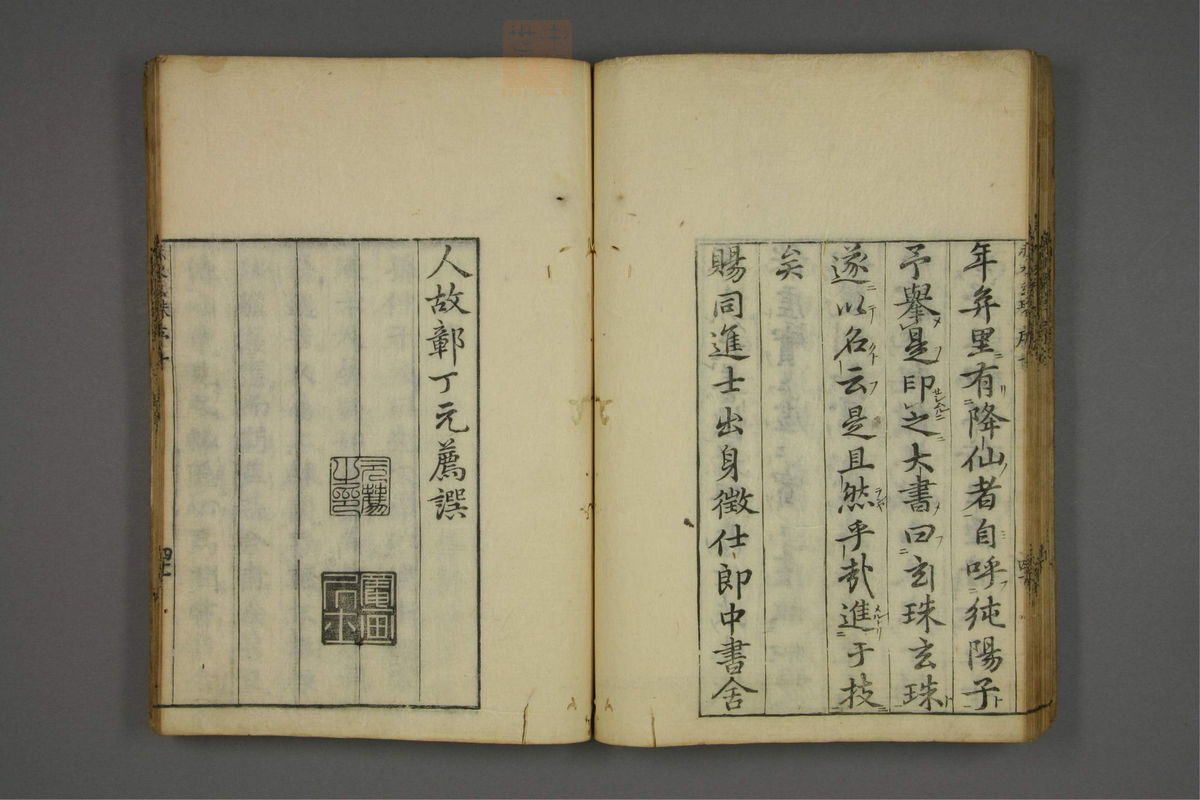 年弇里有降仙者自呼純陽子
予舉是印之大書曰玄珠玄珠
遂以名云是且然乎㢤進于技
矣
賜同進士出身徵仕郎中書舍
人故鄣丁元薦譔
元薦之印